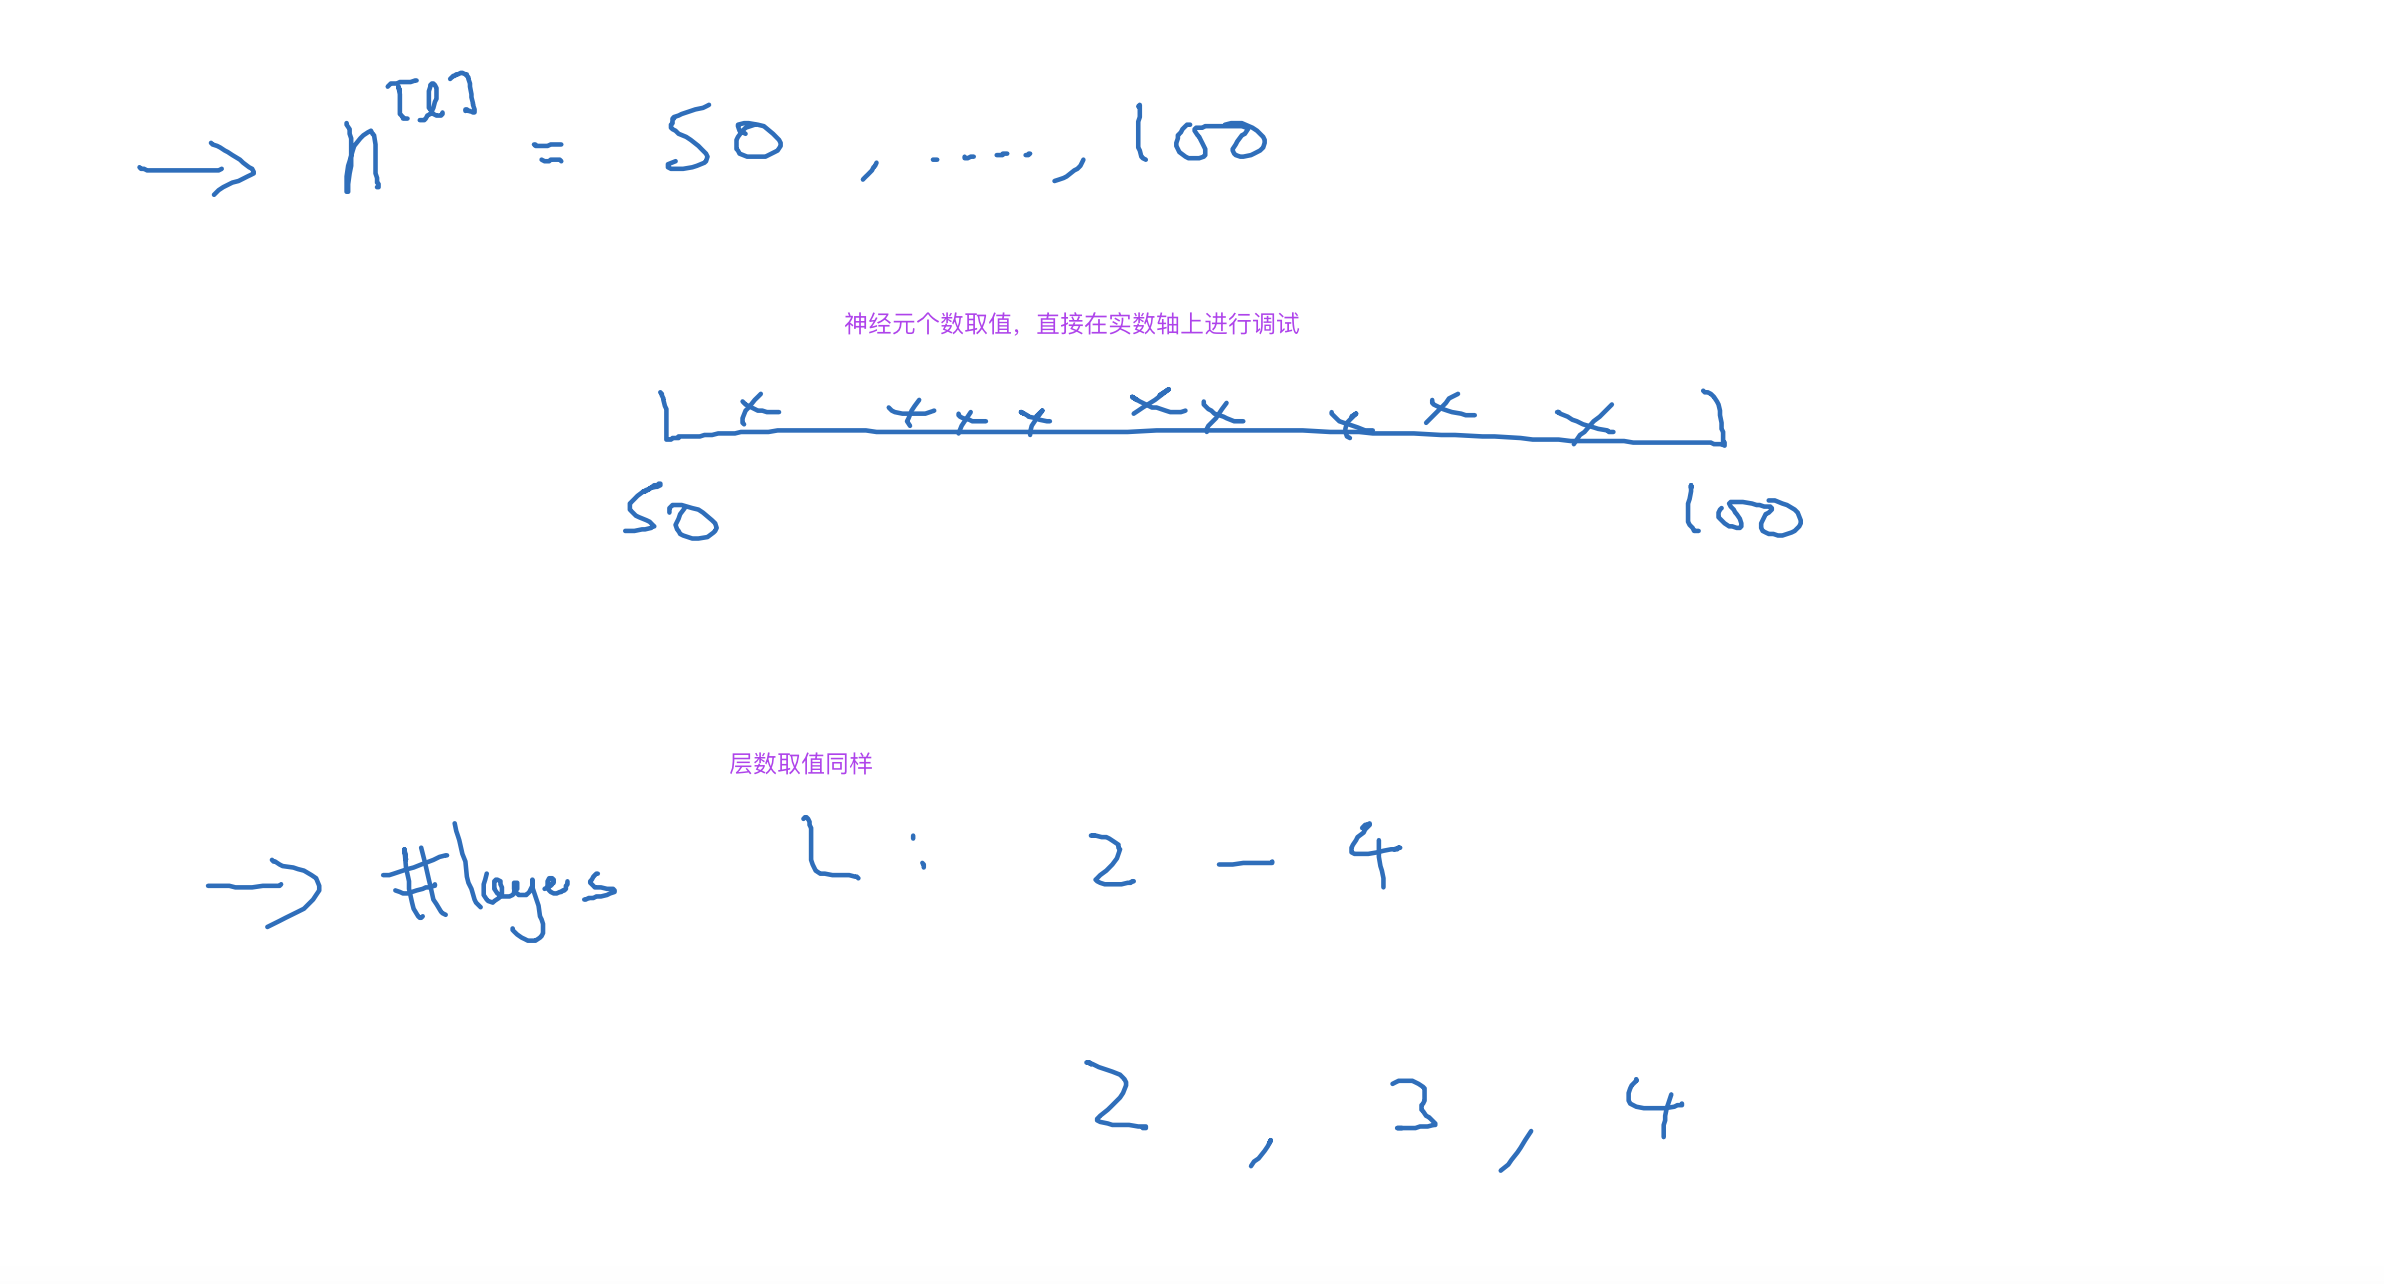 → n^[l] = 50 , ...., 100
神经元个数取值，直接在实数轴上进行调试
50 100
层数取值同样
→ #layes L : 2 - 4
2 , 3 , 4